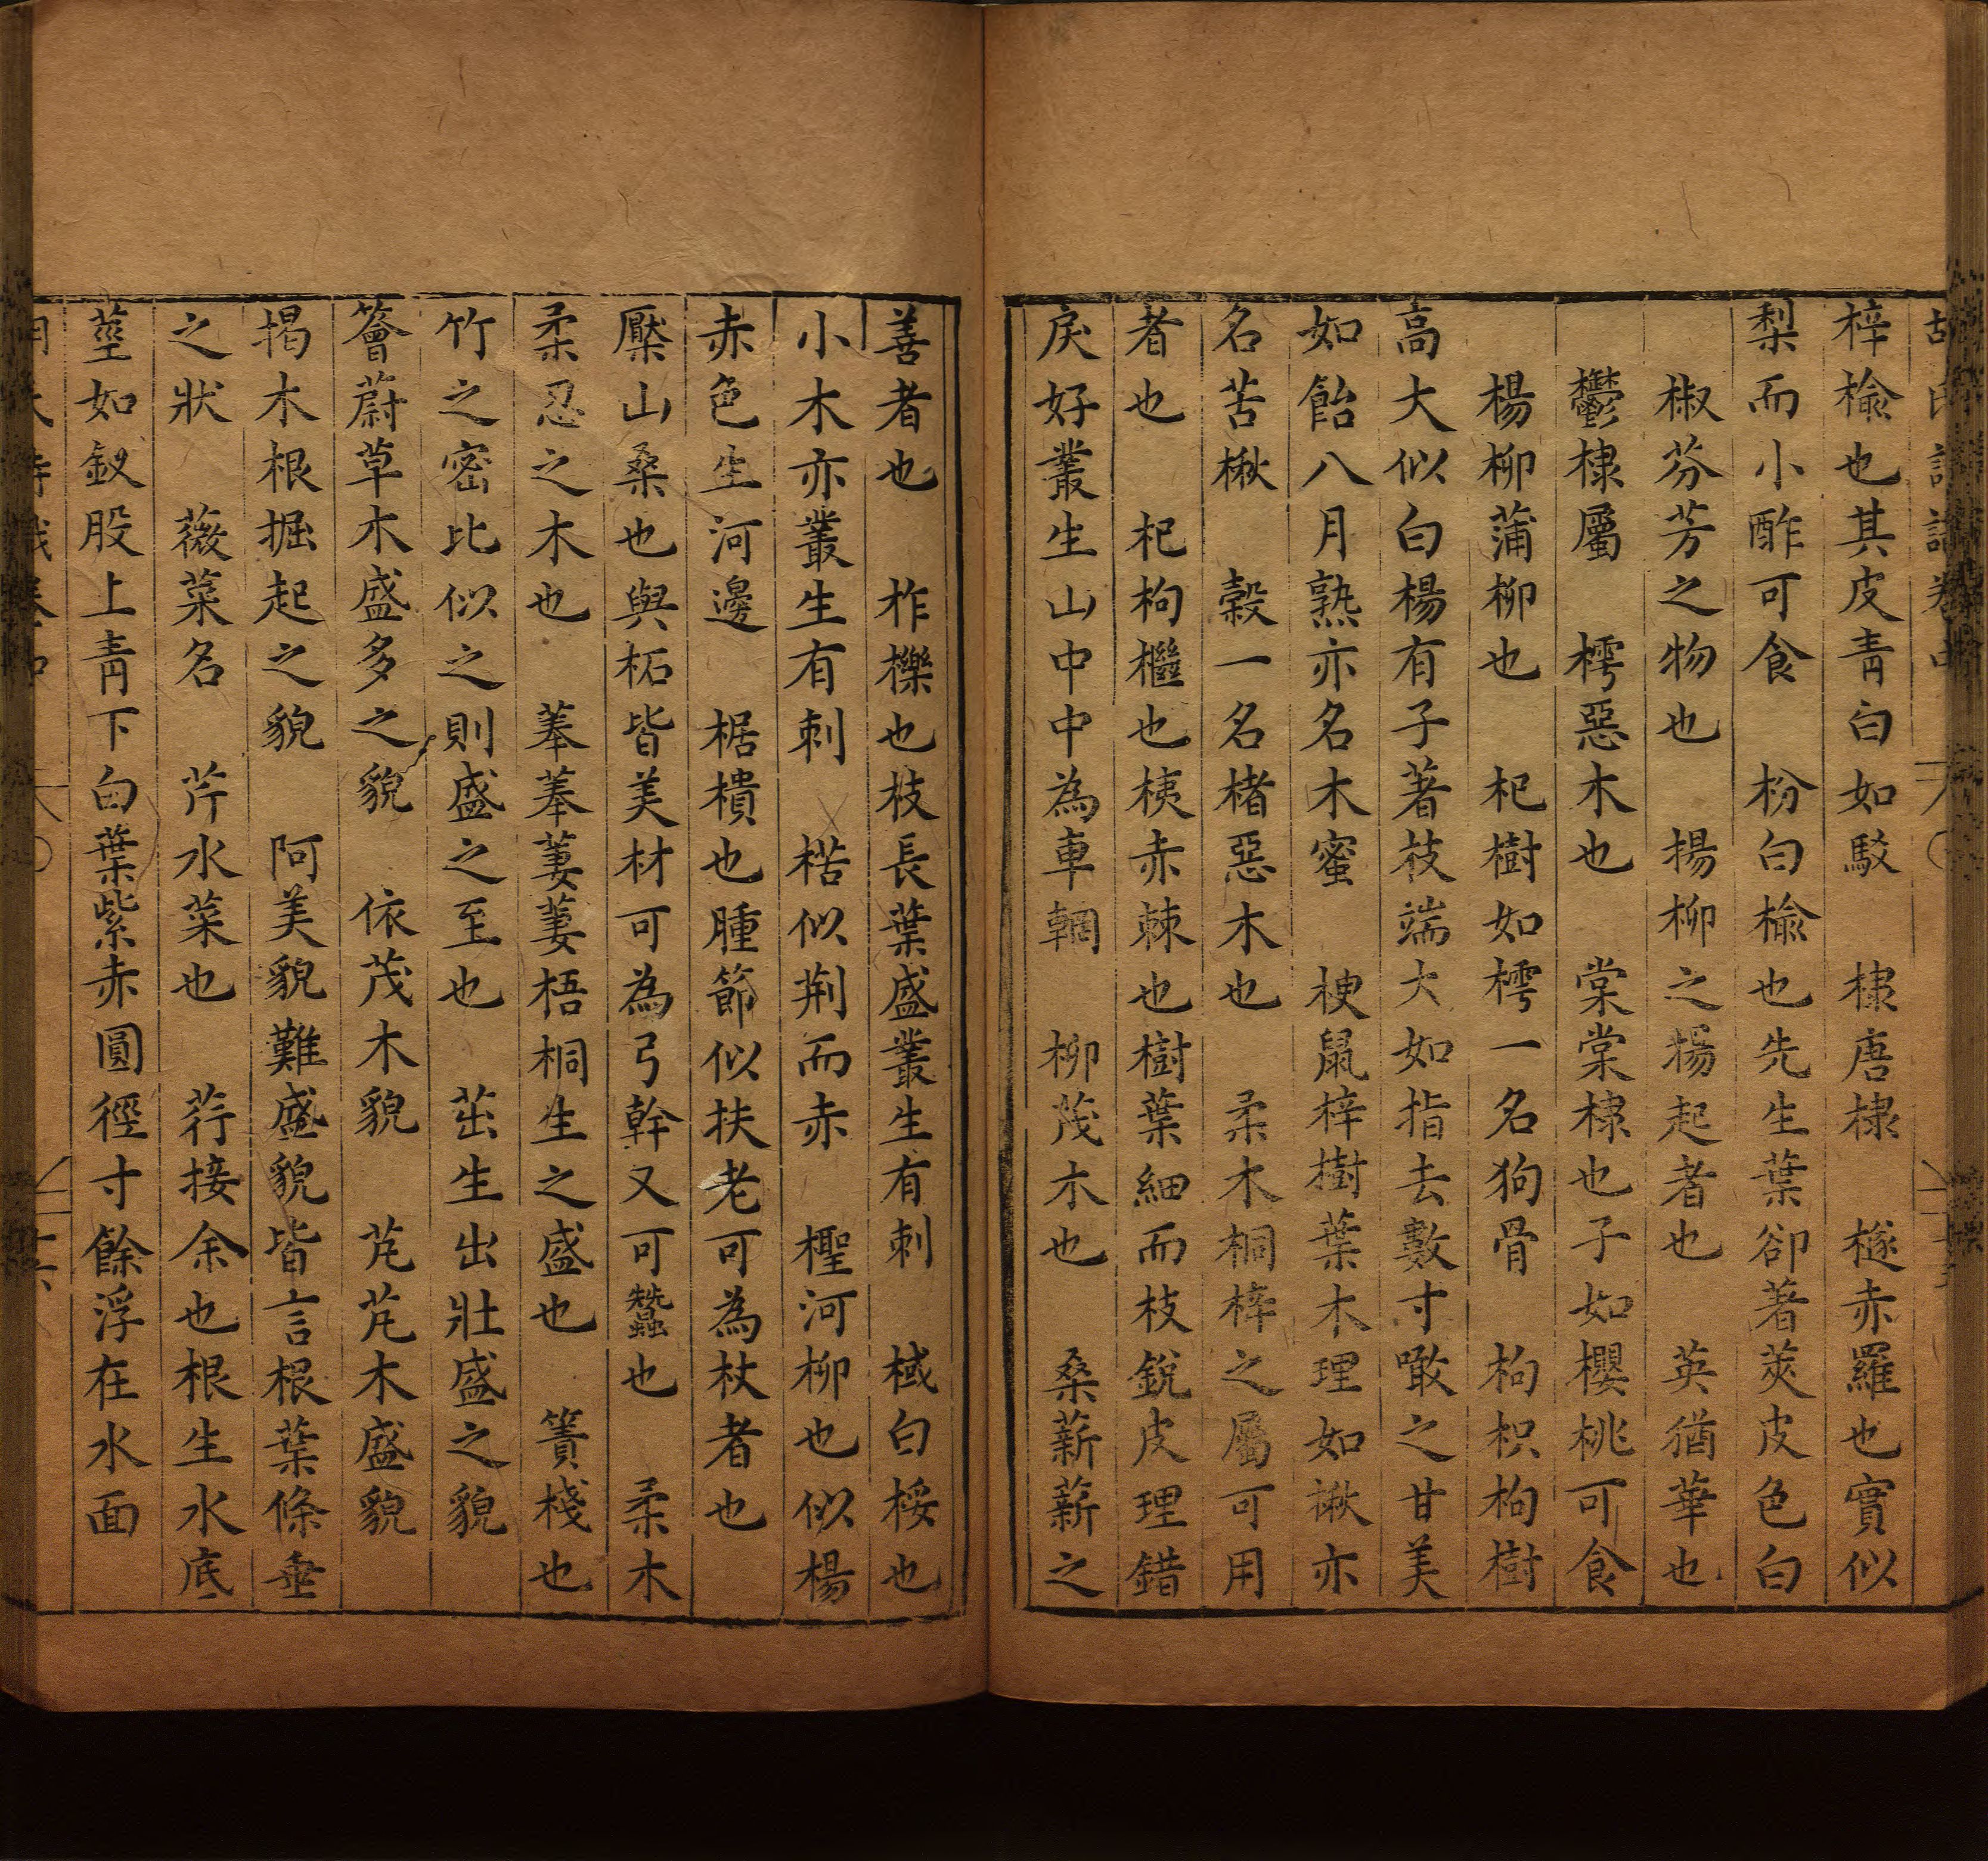 梓楡也其皮靑白如駁　棣唐棣　檖赤羅也實似
梨而小酢可食　枌白楡也先生葉卻著莢皮色白
椒芬芳之物也　揚柳之揚起者也　英猶華也
鬱棣屬　樗惡木也　棠棠棣也子如櫻桃可食
楊柳蒲柳也　杞樹如樗一名狗骨　枸枳枸樹
高大似白楊有子著枝端大如指去數寸噉之甘美
如飴八月熟亦名木蜜　楰鼠梓樹葉木理如楸亦
名苦楸　榖一名楮惡木也　柔木桐梓之屬可用
者也　杞枸檵也桋赤棘也樹葉細而枝銳皮理錯
戾好叢生山中中為車輞　柳茂木也　桑薪薪之
善者也　柞櫟也枝長葉盛叢生有刺　棫白桵也
小木亦叢生有刺　楛似荆而赤　檉河柳也似楊
赤色生河邊　椐樻也腫節似扶老可為杖者也
檿山桑也與柘皆美材可為弓幹又可蠶也　柔木
柔忍之木也　菶菶萋萋梧桐生之盛也　簀棧也
竹之密比似之則盛之至也　茁生出壯盛之貌
薈蔚草木盛多之貌　依茂木貌　芃芃木盛貌
揭木根掘起之貌　阿美貌難盛貌皆言根葉條垂
之狀　薇菜名　芹水菜也　荇接余也根生水底
莖如釵股上靑下白葉紫赤圓徑寸餘浮在水面